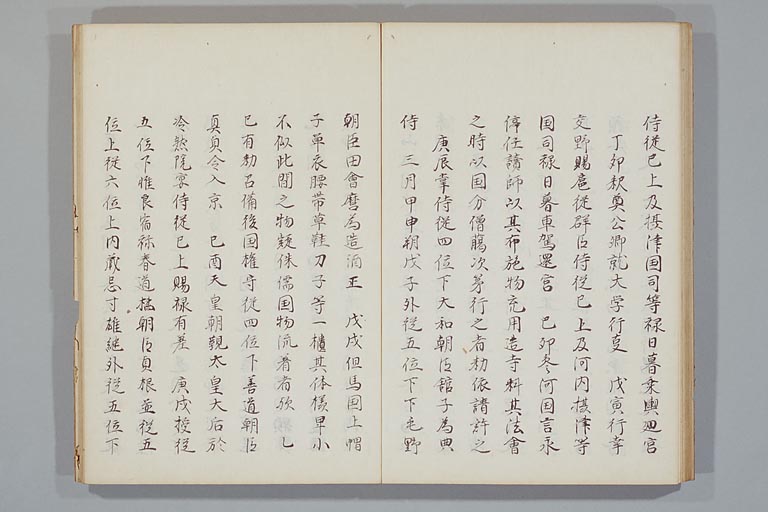 侍従已上及摂津国司等禄日暮乗輿廻宮
丁卯釈奠公卿就大学行受 戊寅行幸
交野賜扈従群臣侍従已上及河内摂津等
国司禄日暮車駕還宮 己卯参河国言永
停任読師以其布施物充用造寺料其法会
之時以国分僧﨟次第行之者勅依請許之
庚辰韋侍従四位下大和朝臣舘子為典
侍 三月甲申朔戊子外従五位下下毛野
朝臣田會麿為造酒正 戊戌但馬国上帽
子草衣腰帯草鞋刀子等一櫃其体様早小
不似此間之物疑侏儒国物流着者欤 乙
巳有勅召備後国権守従四位下善道朝臣
真貞令入京 己酉天皇朝覲太皇太后於
冷然院宴侍従已上賜禄有差 庚戌授従
五位下惟良宿祢春道 朝臣貞根並従五
位上従六位上内蔵忌寸雄継外従五位下